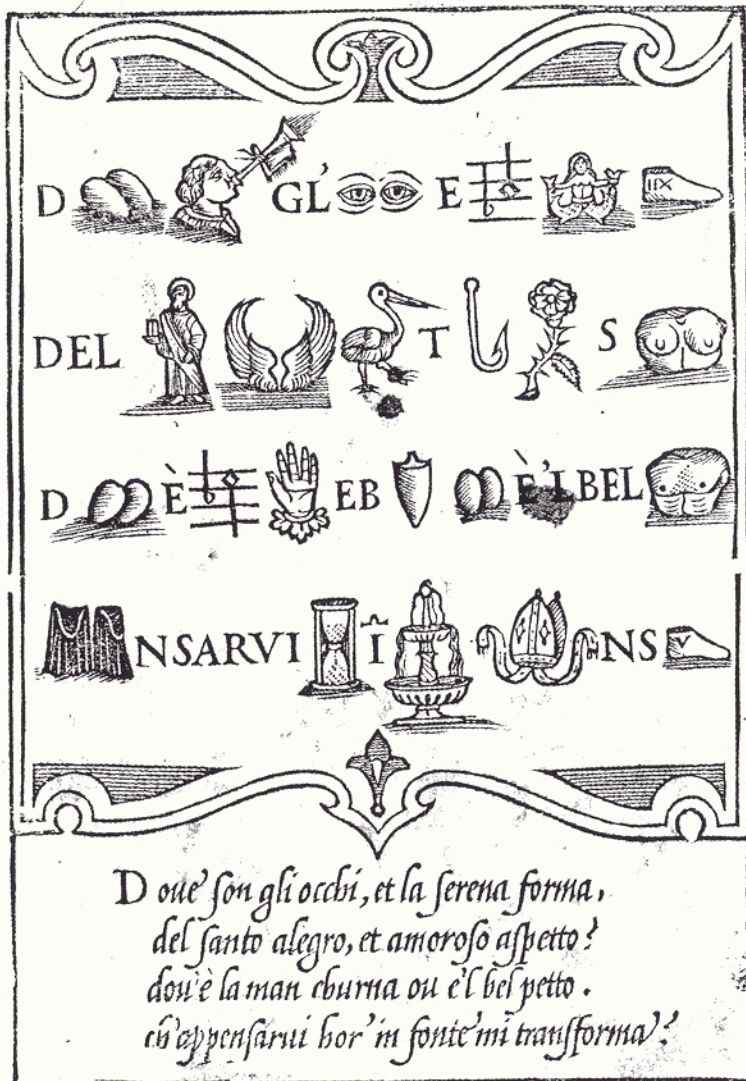 D GL' E IIX
DEL T S
D È EB È'L BEL
NSARVI Ī NS V
D oue' son gli occhi, et la serena forma,
del santo alegro, et amoroso aspetto?
dou'è la man eburna ou è'l bel petto.
ch'appensarui hor' in fonte' mi transforma?